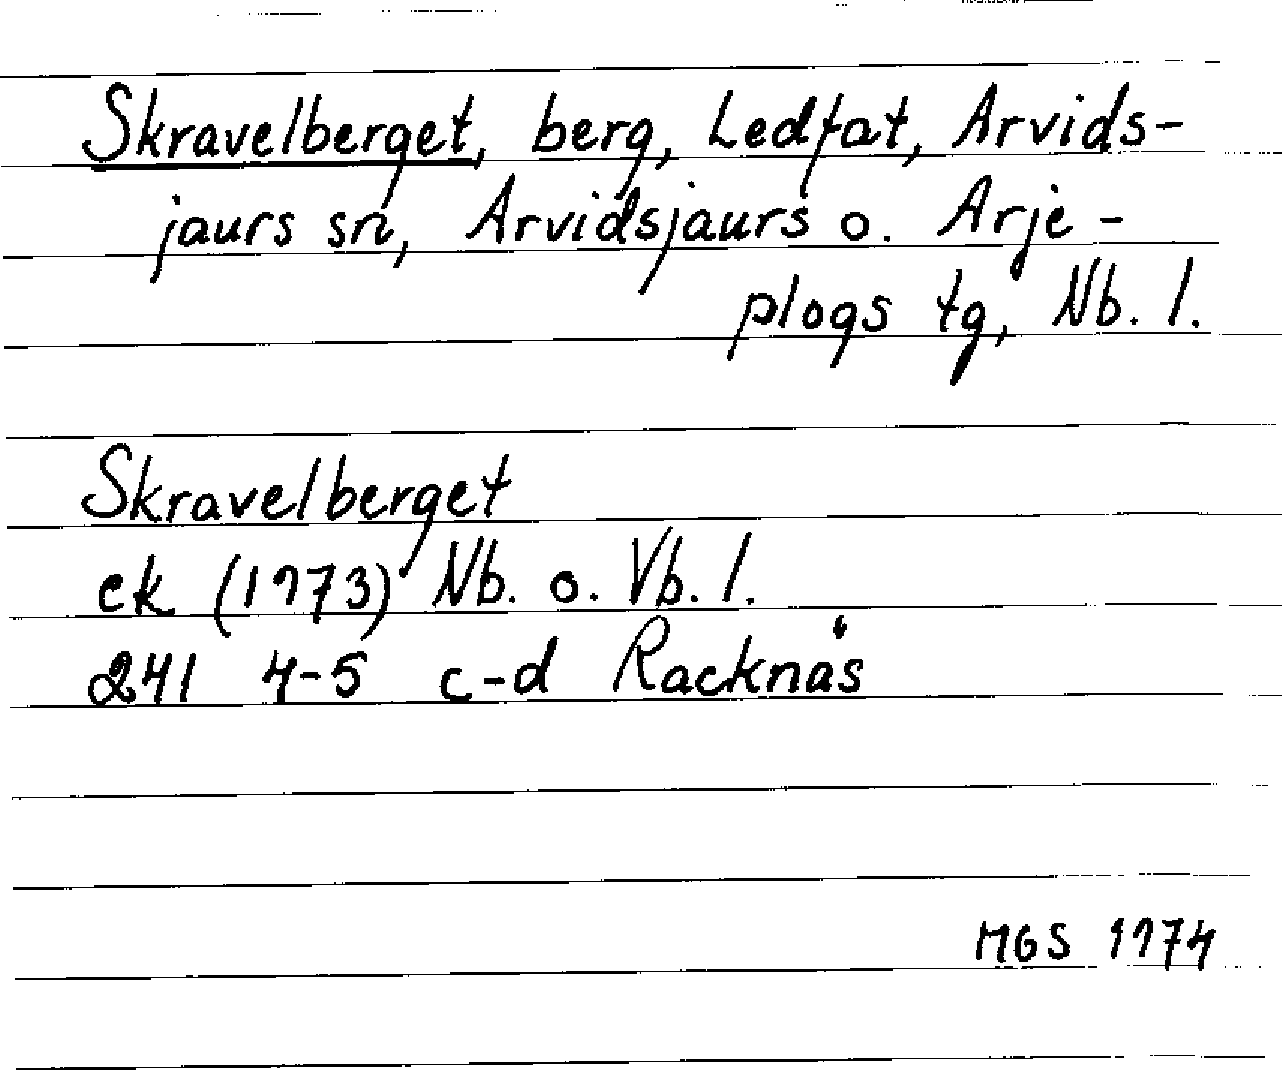 Skravelberget, berg, Ledfat, Arvids-
jaurs sn, Arvidsjaurs o. Arje-
plogs tg, Nb. l.
Skravelberget
ek (1973) Nb. o. Vb. l.
241 4-5 c-d Racknäs
MGS 1974